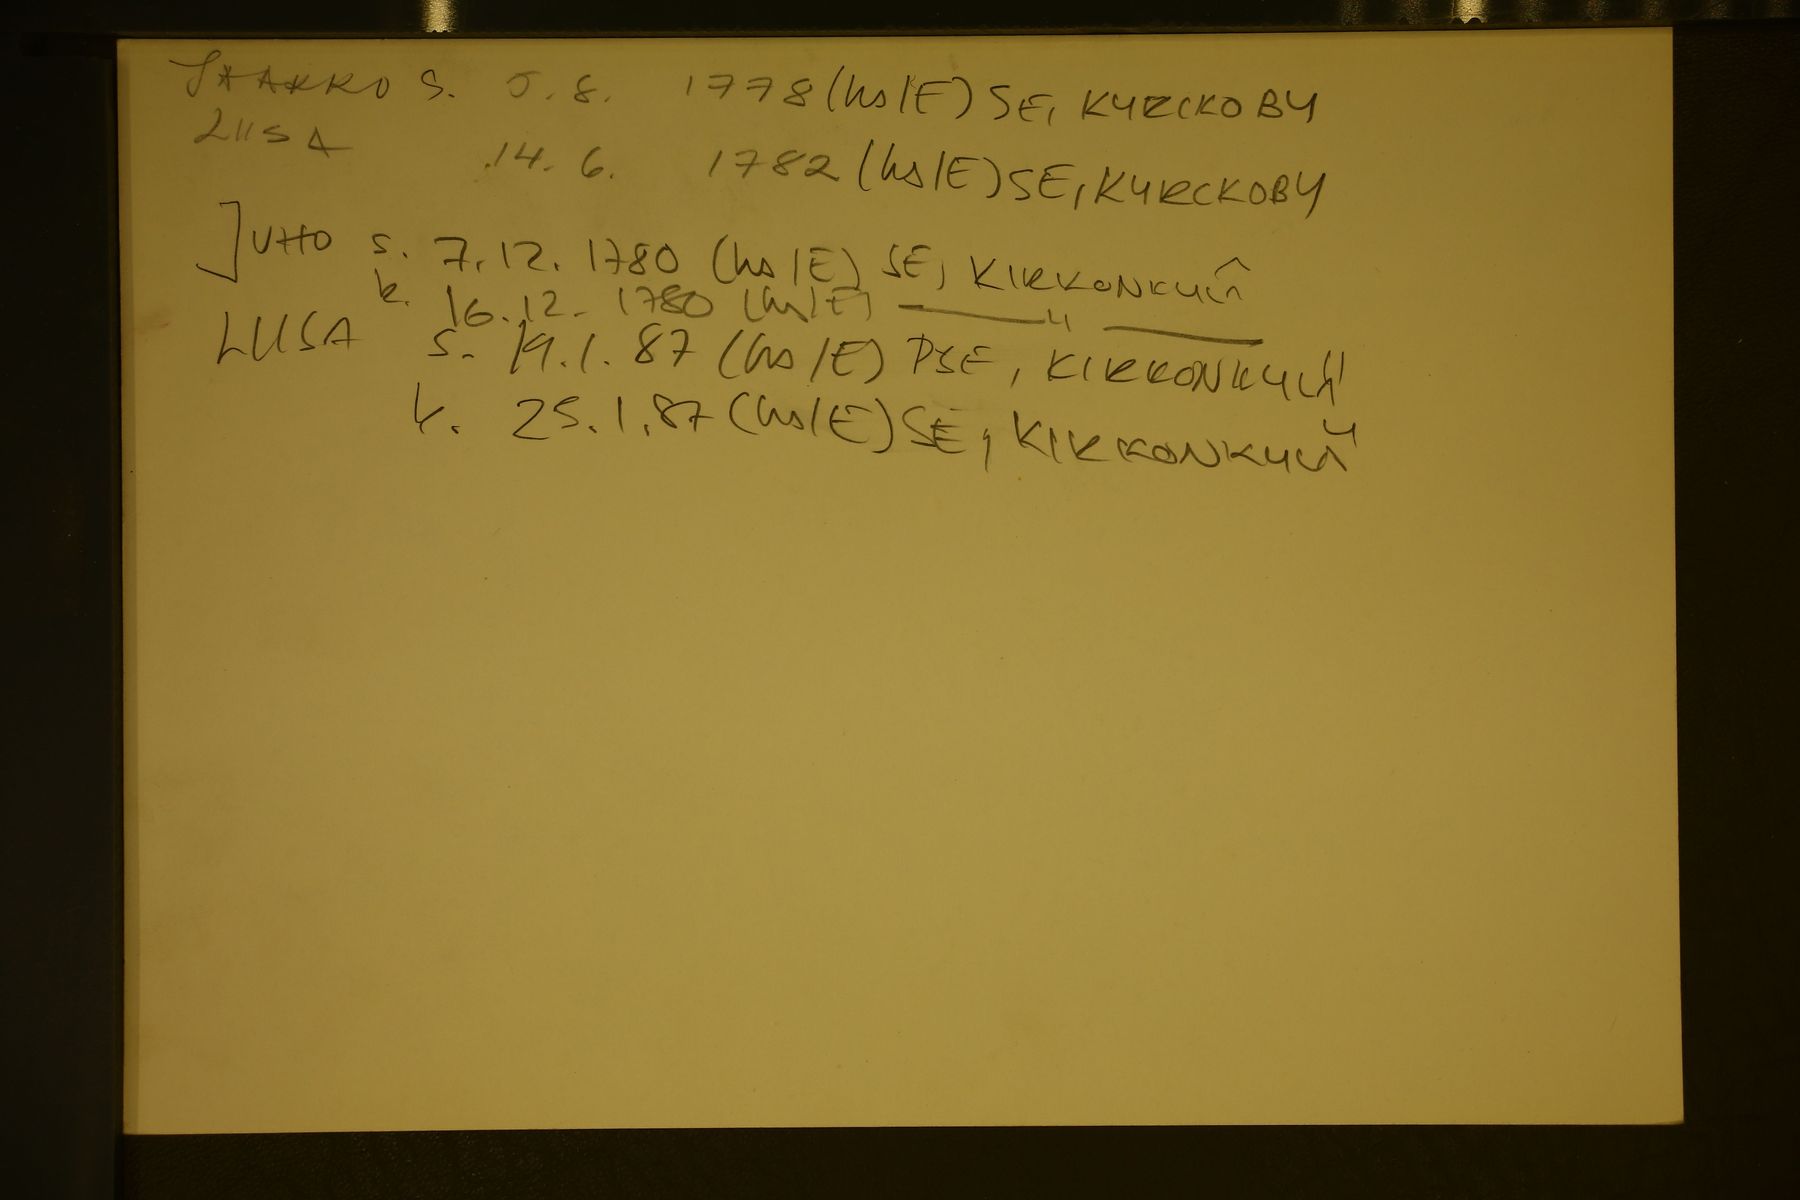 JAAKKO S. 5.8. 1778 (hs/E) SE, KYRCKOBY
LIISA 14.6. 1782 (hs/E) SE, KYRCKOBY
JUHO s. 7.12. 1780 (hs/E) SE, KIRKONKYLÄ
k. 16.12. 1780 (hs/E) — " —
LIISA s. 19.1.87 (hs/E) PSE, KIRKONKYLÄ
k. 25.1.87 (hs/E) SE, KIRKONKYLÄ